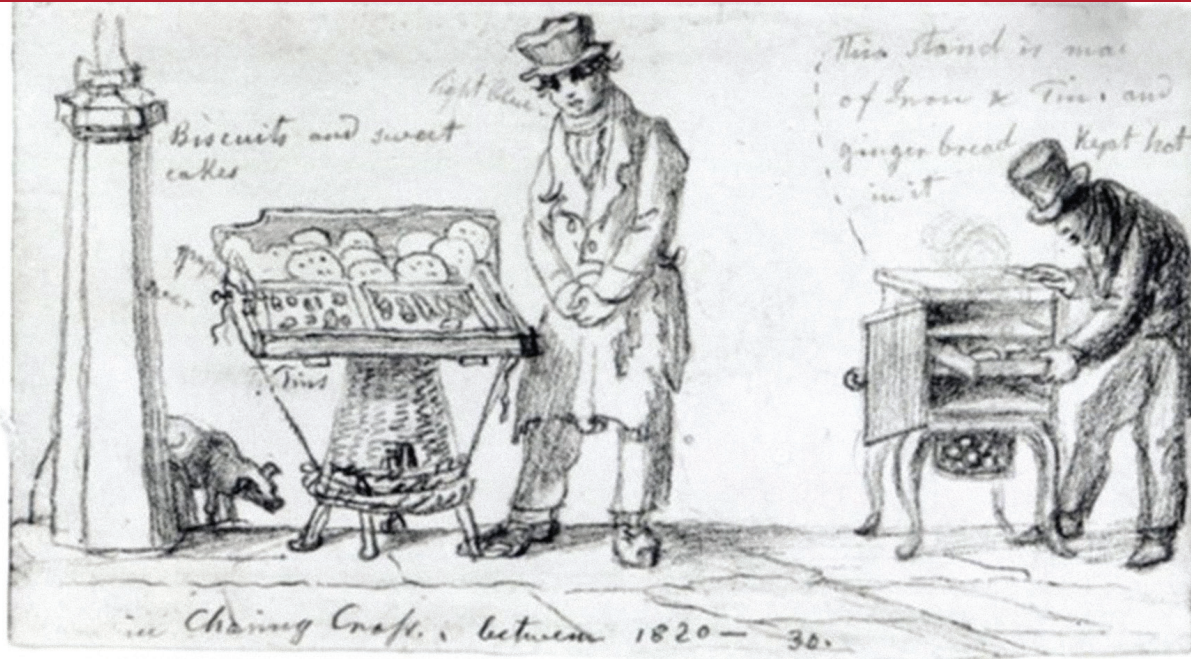 Biscuits and sweet
cakes
light blue
This stand is mad
of Iron & Tin. and
ginger bread Kept hot
in it
Tins
in Charing Cross. between 1820 – 30.